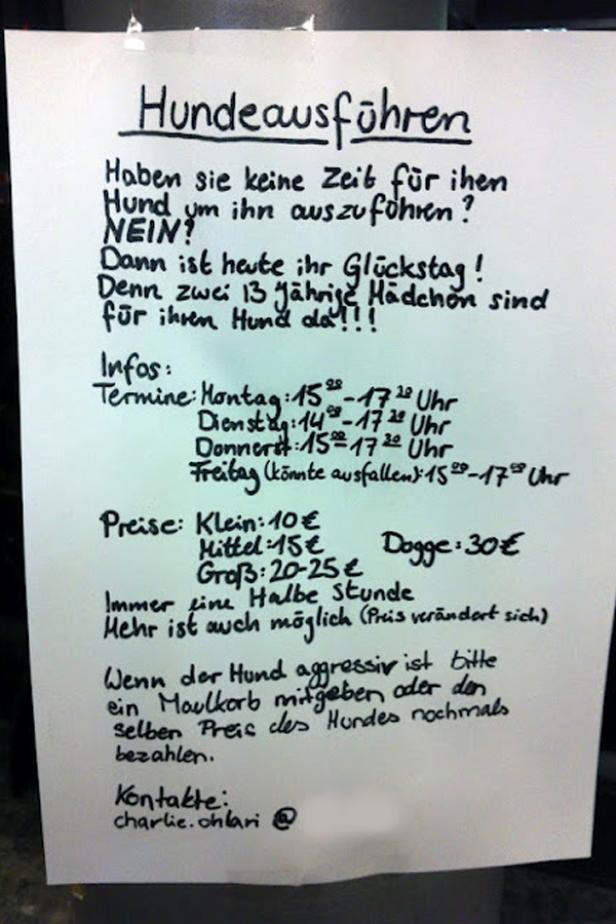 Hundeausführen
Haben sie keine Zeit für ihen
Hund um ihn auszuführen?
NEIN?
Dann ist heute ihr Glückstag!
Denn zwei 13 Jährige Mädchen sind
für ihren Hund da!!!
Infos:
Termine: Montag: 15⁰⁰-17³⁰ Uhr
Dienstag: 14⁰⁰-17³⁰ Uhr
Donnerst: 15⁰⁰-17³⁰ Uhr
Freitag (könnte ausfallen): 15⁰⁰-17⁰⁰ Uhr
Preise: Klein: 10€
Mittel: 15€ Dogge: 30€
Groß: 20-25€
Immer eine Halbe Stunde
Mehr ist auch möglich (Preis verändert sich)
Wenn der Hund aggressiv ist bitte
ein Maulkorb mitgeben oder den
selben Preis des Hundes nochmals
bezahlen.
Kontakte:
charlie.ohlari @